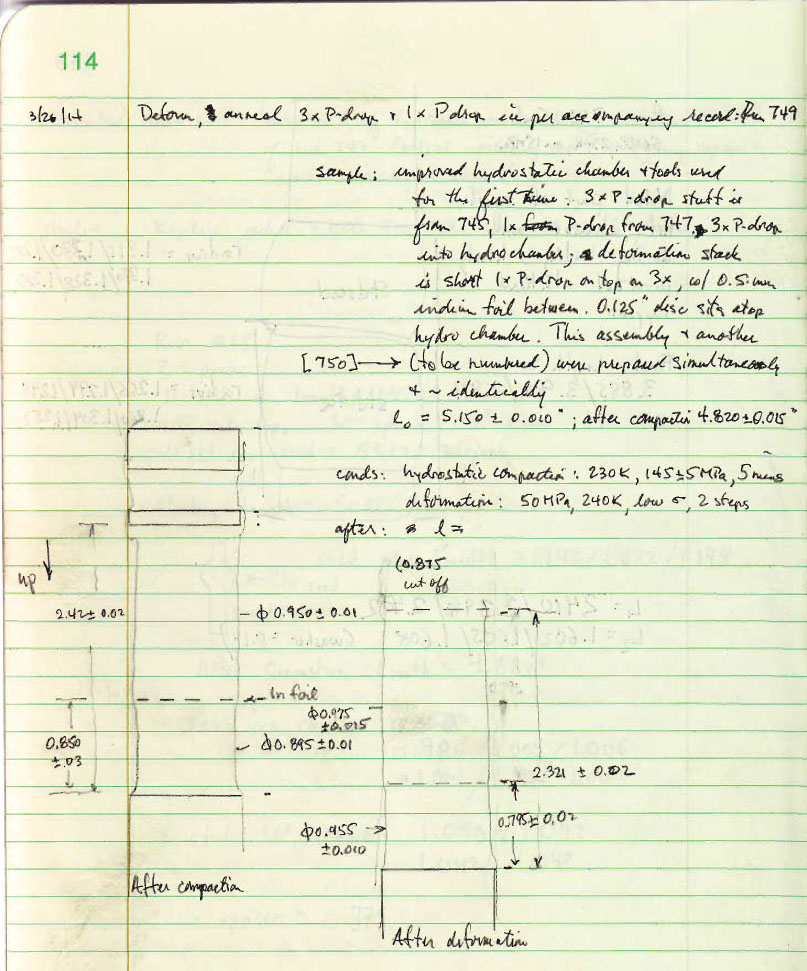 114
3/26/14 Deform, & anneal 3x P-drop + 1x P drop ice per accompanying record: Run 749
sample: improved hydrostatic chamber + tools used
for the first time. 3x P-drop stuff is
from 745, 1x P-drop from 747. 3x P-drop
into hydrochamber; deformation stack
is short 1x P-drop on top on 3x, w/ 0.5-mm
indium foil between. 0.125" disc sits atop
hydro chamber. This assembly + another
[750]→ (to be numbered) were prepared simultaneously
+ ~ identically
L₀ = 5.150 ± 0.010"; after compaction 4.820±0.015"
conds: hydrostatic compaction: 230K, 145±5MPa, 5 mins
deformation: 50MPa, 240K, low σ, 2 steps
after: l =
(0.875
cut off
up
2.42± 0.02
ϕ 0.950±0.01
In foil
ϕ0.975
±0.015
0.850
±.03
ϕ0.895±0.01
2.321 ± 0.02
0.795±0.02
ϕ0.955
±0.010
After compaction
After deformation